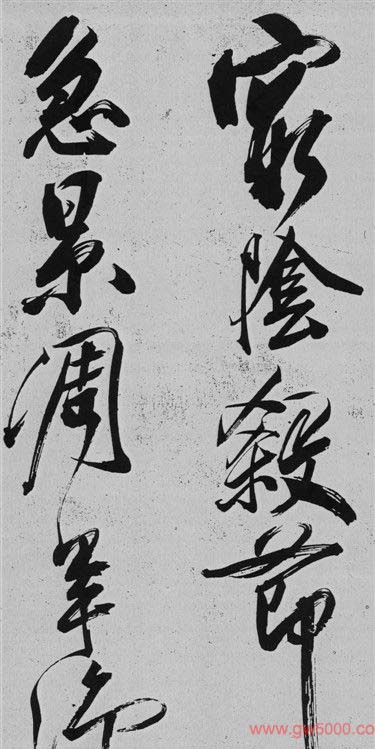 窮陰殺節
急景凋年
www.gw5000.co